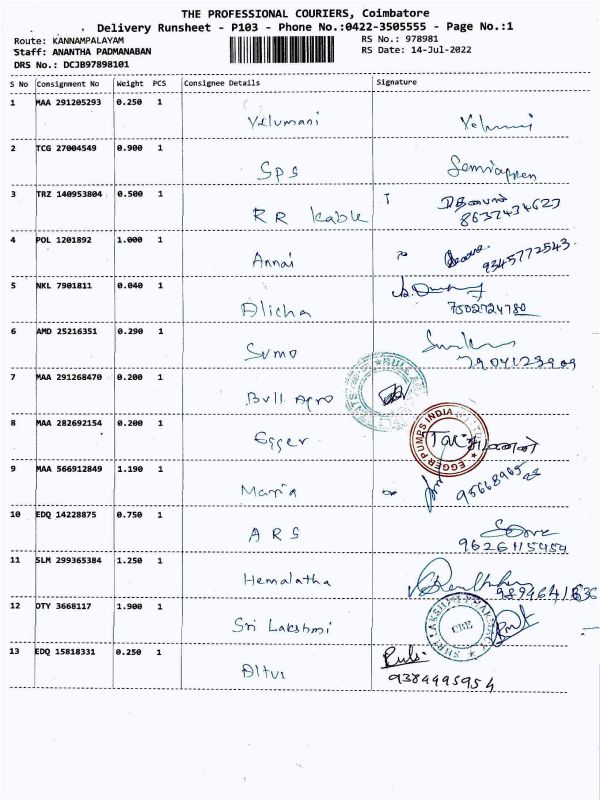 THE PROFESSIONAL COURIERS, Coimbatore
Delivery Runsheet - P103 - Phone No.:0422-3505555 - Page No.:1
Route: KANNAMPALAYAM RS No.: 978981
Staff: ANANTHA PADMANABAN RS Date: 14-Jul-2022
DRS No.: DCJB97898101
S No Consignment No Weight PCS Consignee Details Signature
1 MAA 291205293 0.250 1 Velumani
2 TCG 27004549 0.900 1 SPS
3 TRZ 140953804 0.500 1 RR Kable
8637434623
4 POL 1201892 1.000 1 Annai
9345772543
5 NKL 7901811 0.040 1 Alicha
7502724780
6 AMD 25216351 0.290 1 Sumo
7904123909
7 MAA 291268470 0.200 1 Bull Agro
8 MAA 282692154 0.200 1 Egger
EGGER PUMPS INDIA
9 MAA 566912849 1.190 1 Maria
10 EDQ 14228875 0.750 1 ARS
9626115454
11 SLM 299365384 1.250 1 Hemalatha
12 OTY 3668117 1.900 1 Sri Lakshmi
CBE
13 EDQ 15818331 0.250 1 Altus
9384995954